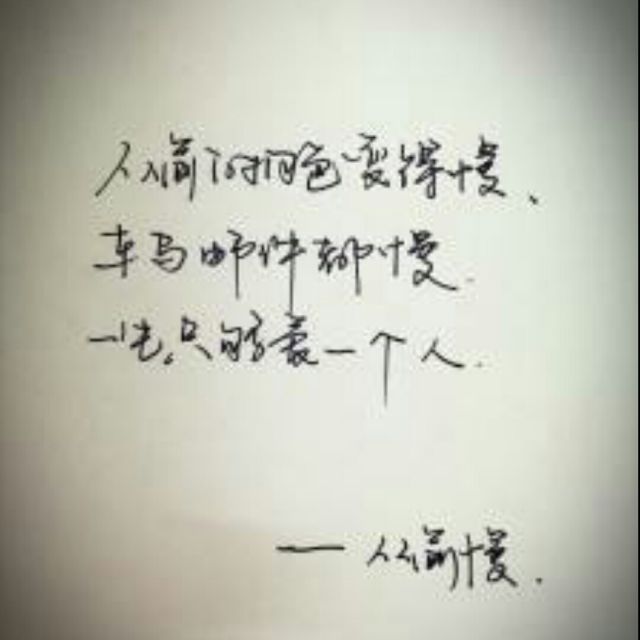 从前的日色变得慢、
车马邮件都慢.
一生,只够爱一个人.
——从前慢.